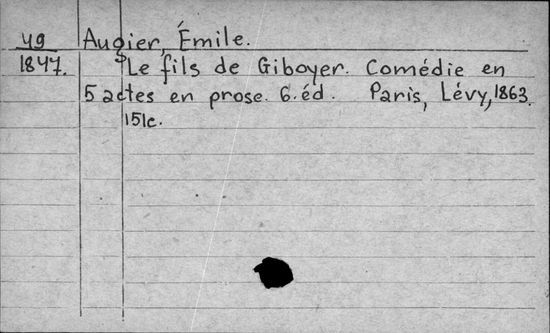 49 Augier, Émile.
1847. Le fils de Giboyer. Comédie en
5 actes en prose. 6. éd. Paris, Lévy, 1863.
151c.